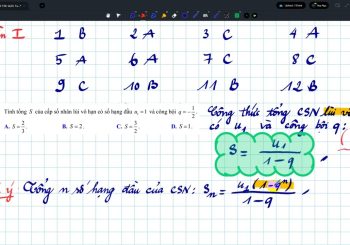 1 B 2 A 3 C 4 A
5 A 6 A 7 C 8 C
9 C 10 B 11 B 12 B
Tính tổng S của cấp số nhân lùi vô hạn có số hạng đầu u₁ = 1 và công bội q = -1/2.
A. S = 2/3. B. S = 2. C. S = 3/2.
Công thức tổng CSN lùi
có u₁ và công bội q:
S = u₁/(1 - q)
ý Tổng n số hạng đầu của CSN: Sₙ = u₁(1 - qⁿ)/(1 - q)